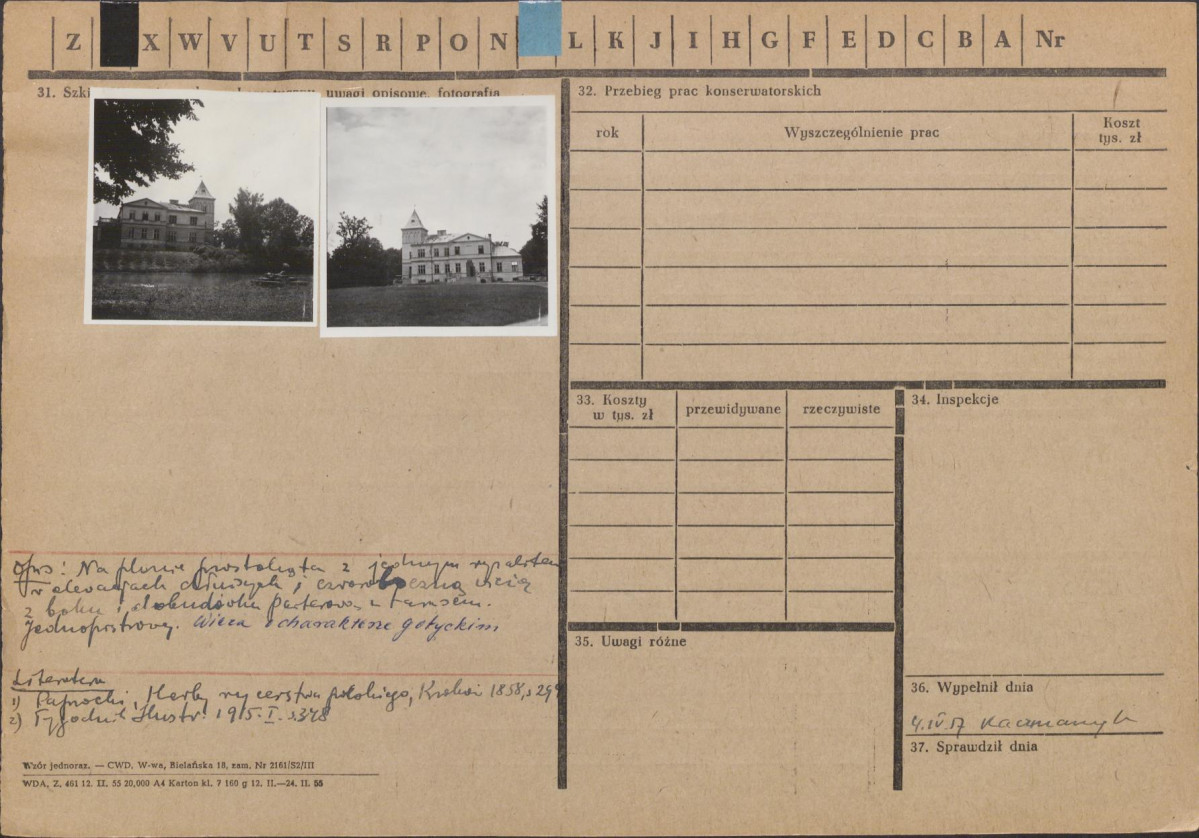 Z X W V U T S R P O N L K J I H G F E D C B A Nr
31. uwagi opisowe, fotografia
32. Przebieg prac konserwatorskich
rok Wyszczególnienie prac Koszt
tys. zł
33. Koszty
w tys. zł przewidywane rzeczywiste
34. Inspekcje
35. Uwagi różne
36. Wypełnił dnia
37. Sprawdził dnia
Opis: Na planie prostokąta z jednym ryzalitem
w elewacjach dłuższych i czworoboczną wieżą
z boku i dobudówką parterową z tarasem.
Jednopiętrowy. Wieża o charakterze gotyckim
Literatura
1) Paprocki, Herby rycerstwa polskiego, Kraków 1858, s 299
2) Tygodnik Ilustr. 1915. I. s. 348
Wzór jednoraz. — CWD, W-wa, Bielańska 18, zam. Nr 2161/S2/III
WDA, Z. 461 12. II. 55 20,000 A4 Karton kl. 7 160 g 12. II.—24. II. 55